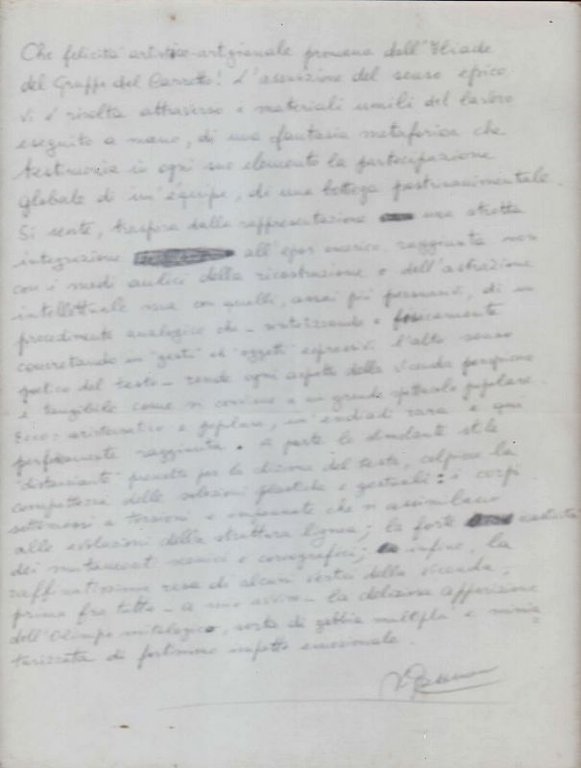 Che felicità artistico-artigianale promana dall'Iliade
del Gruppo del Carretto! L'assunzione del senso epico
vi è risolta attraverso i materiali umili del lavoro
eseguito a mano, di una fantasia metaforica che
testimonia in ogni suo elemento la partecipazione
globale di un'équipe, di una bottega postrinascimentale.
Si sente, traspare dalla rappresentazione una stretta
integrazione all'epos omerico, raggiunta non
con i modi aulici della ricostruzione o dell'astrazione
intellettuale ma con quelli, assai più persuasivi, di un
procedimento analogico che - sintetizzando e fisicamente
concretando in "gesti" ed "oggetti" espressivi l'alto senso
poetico del testo - rende ogni aspetto della vicenda
e tangibile come si conviene a un grande spettacolo popolare.
Ecco: aristocratico e popolare, un'endiadi rara e qui
perfettamente raggiunta. A parte lo stile
"distanziante" prescelto per la dizione del testo, colpisce la
compattezza delle soluzioni plastiche e gestuali: i corpi
sottomessi a torsioni e che si assimilano
alle evoluzioni della struttura lignea; la forte
dei mutamenti scenici e coreografici; infine, la
raffinatissima resa di alcuni vertici della vicenda,
prima fra tutte - a mio avviso - la deliziosa apparizione
dell'Olimpo mitologico, sorta di gabbia multipla e minia
turizzata di fortissimo impatto emozionale.